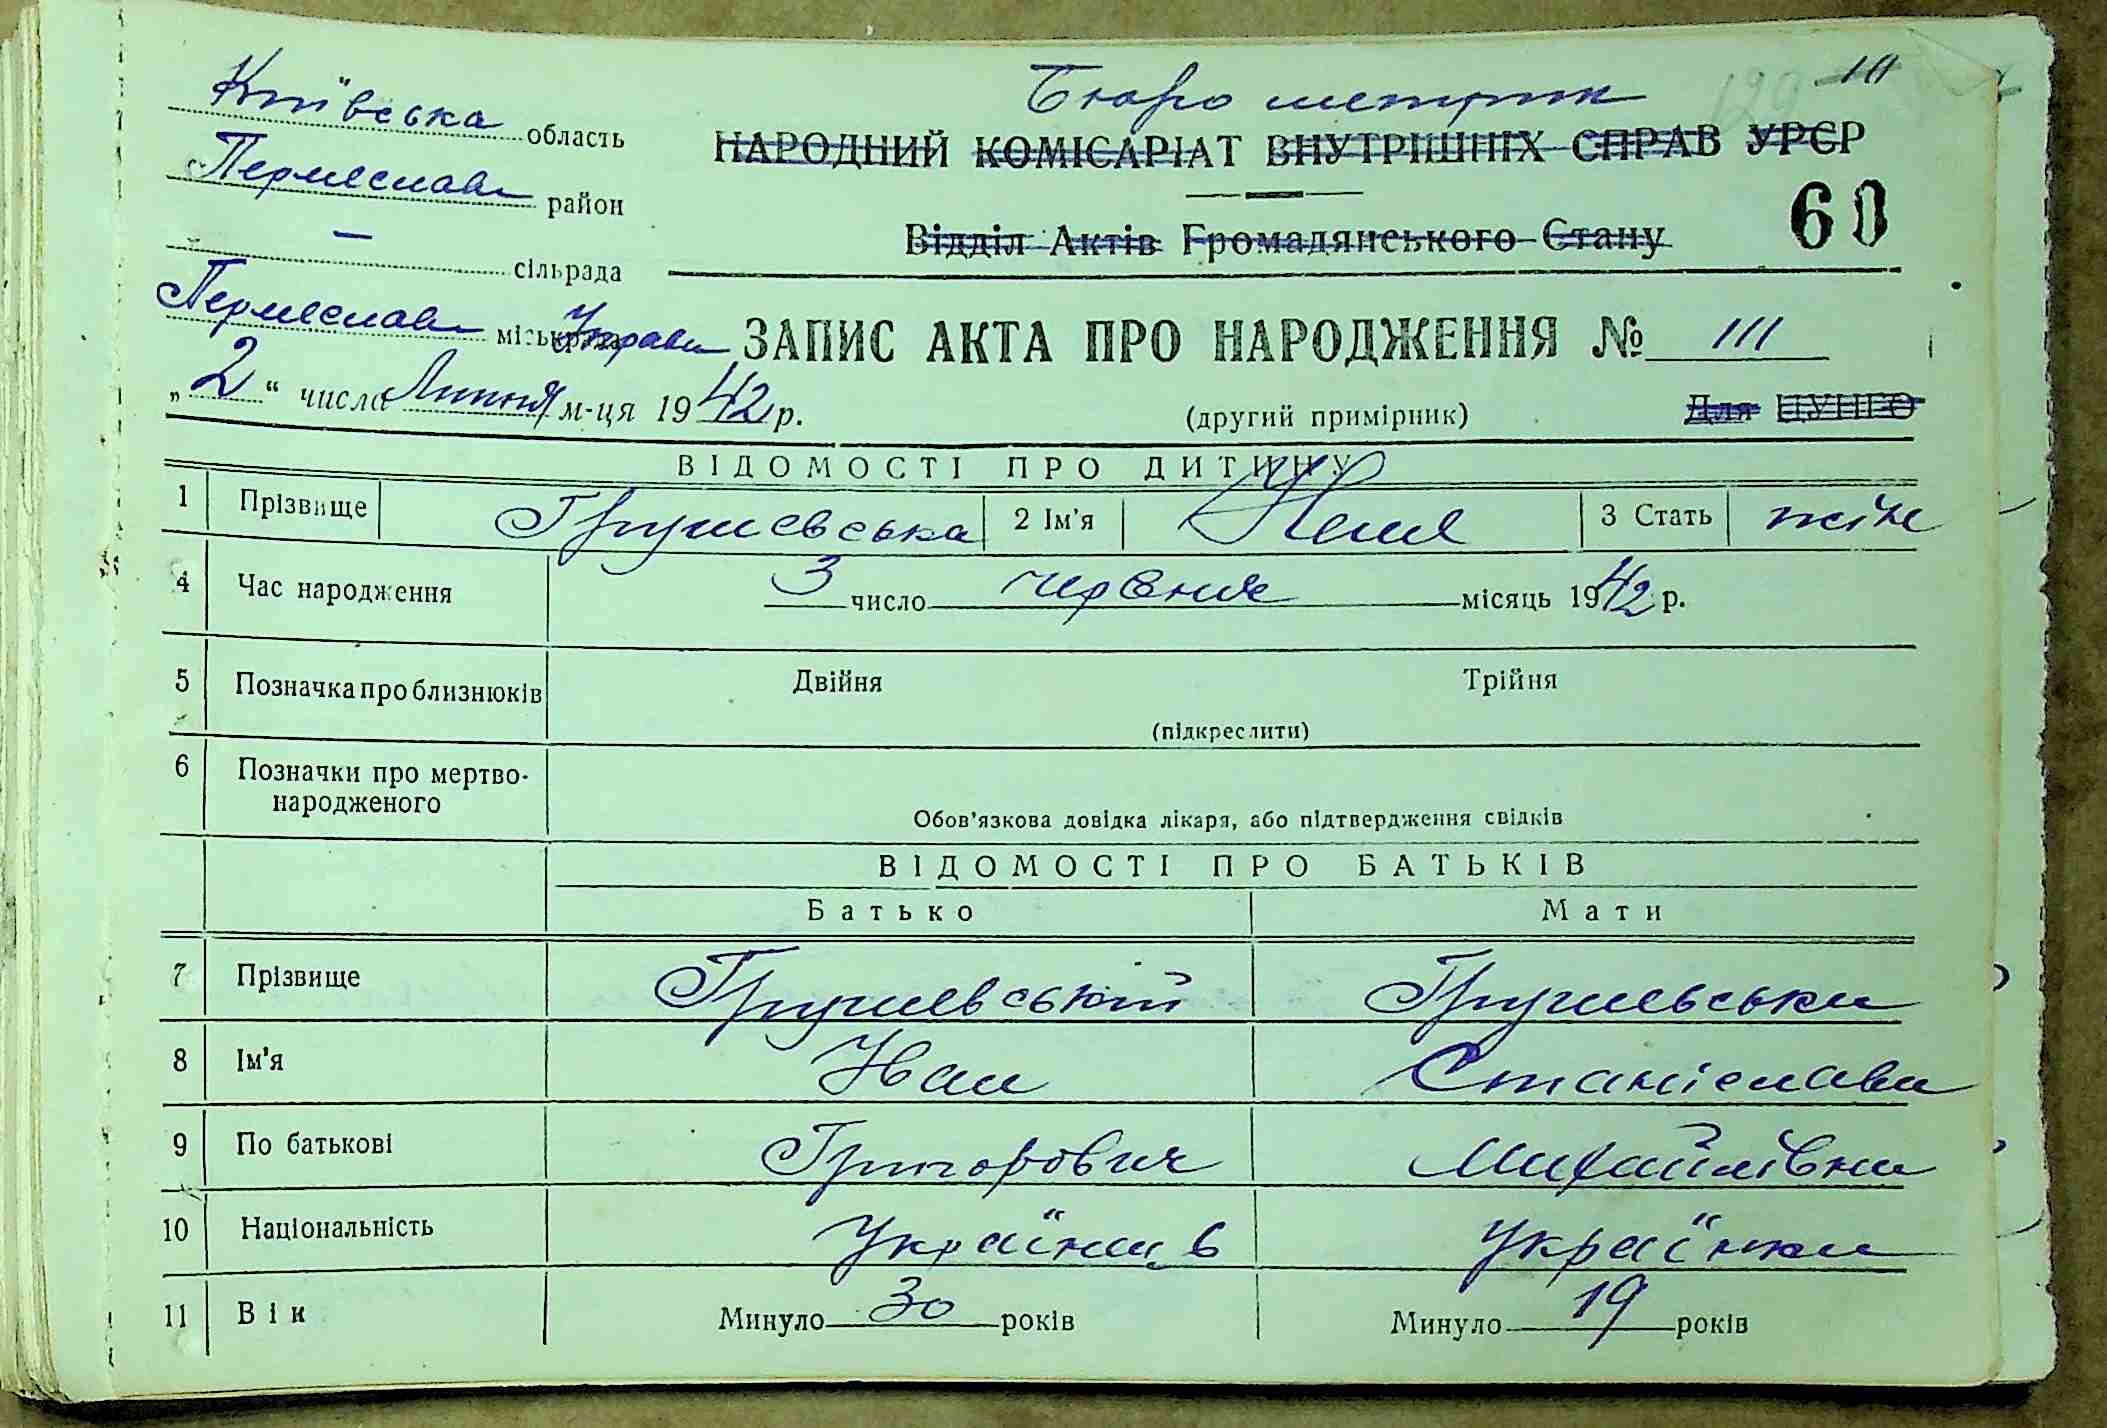 Київська область
Бюро метрик
НАРОДНИЙ КОМІСАРІАТ ВНУТРІШНІХ СПРАВ УРСР
Переяслав район
60
Відділ Актів Громадянського Стану
— сільрада
Переяслав міськрада Управа
ЗАПИС АКТА ПРО НАРОДЖЕННЯ № 111
„2“ числа Липня м-ця 1942 р.
(другий примірник)
Для ЦУНГО
ВІДОМОСТІ ПРО ДИТИНУ
1 Прізвище Грушевська 2 Ім'я Неля 3 Стать жіне
4 Час народження 3 число червня місяць 1942 р.
5 Позначка про близнюків Двійня Трійня
(підкреслити)
6 Позначки про мертво-
народженого
Обов'язкова довідка лікаря, або підтвердження свідків
ВІДОМОСТІ ПРО БАТЬКІВ
Батько Мати
7 Прізвище Грушевський Грушевська
8 Ім'я Иван Станіслава
9 По батькові Григорович Михайлівна
10 Національність Українець Українка
11 Вік Минуло 30 років Минуло 19 років